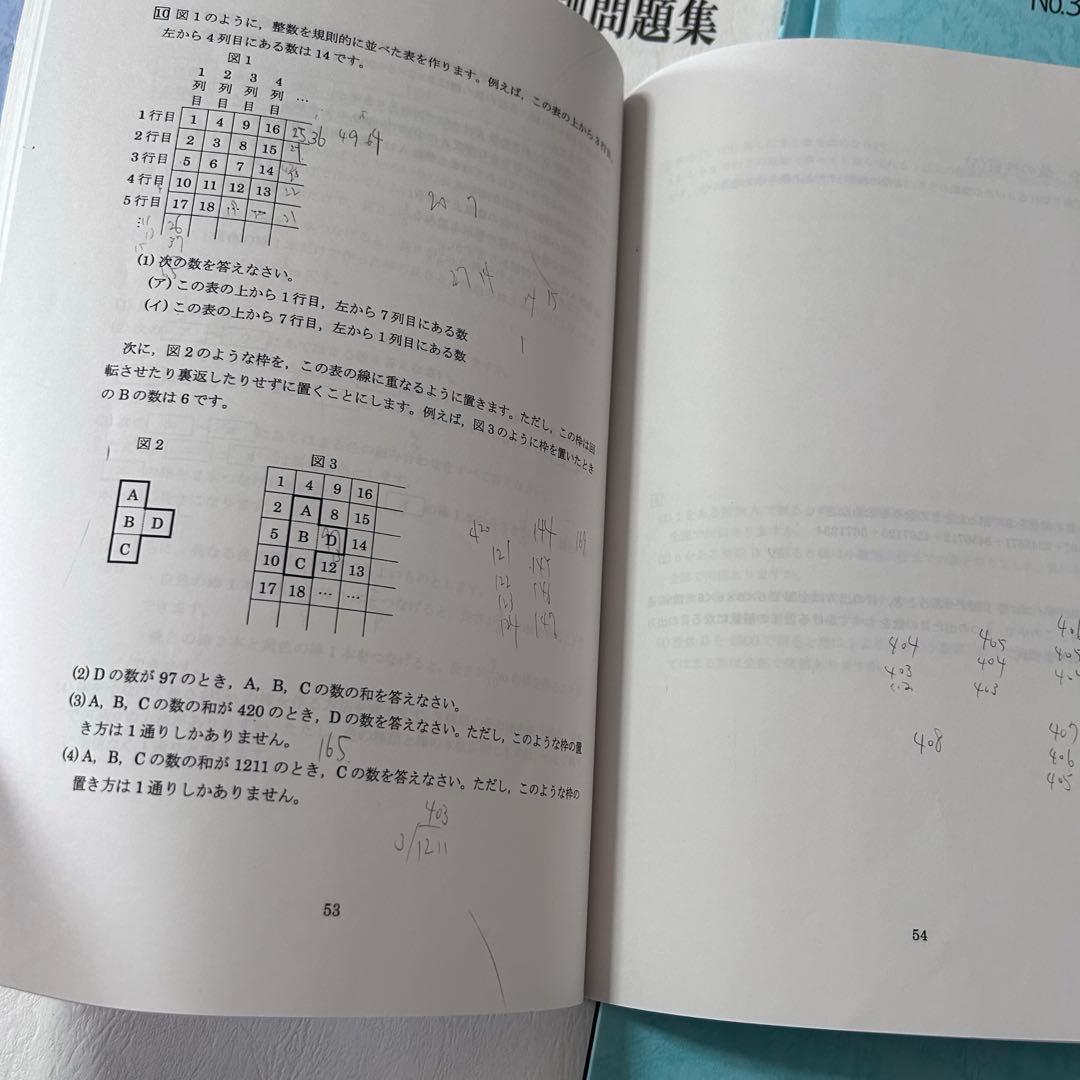 問題集
No.3
10 図1のように，整数を規則的に並べた表を作ります。例えば，この表の上から3行目，
左から4列目にある数は14です。
図1
1列目 2列目 3列目 4列目 …
1行目 1 4 9 16 25 36 49 64
2行目 2 3 8 15
3行目 5 6 7 14
4行目 10 11 12 13 22
5行目 17 18 21
⋮ 26
37
20 7
27 14
(1) 次の数を答えなさい。
(ア) この表の上から1行目，左から7列目にある数
(イ) この表の上から7行目，左から1列目にある数
次に，図2のような枠を，この表の線に重なるように置きます。ただし，この枠は回
転させたり裏返したりせずに置くことにします。例えば，図3のように枠を置いたとき
のBの数は6です。
図2
A
B D
C
図3
1 4 9 16
2 A 8 15
5 B D 14
10 C 12 13
17 18 … …
420 144
121 145
122 146
123 147
124
(2) Dの数が97のとき，A，B，Cの数の和を答えなさい。
(3) A，B，Cの数の和が420のとき，Dの数を答えなさい。ただし，このような枠の置
き方は1通りしかありません。 165
(4) A，B，Cの数の和が1211のとき，Cの数を答えなさい。ただし，このような枠の
置き方は1通りしかありません。
403
3 1211
53
404 405
403 404
403
408
407
406
405
54